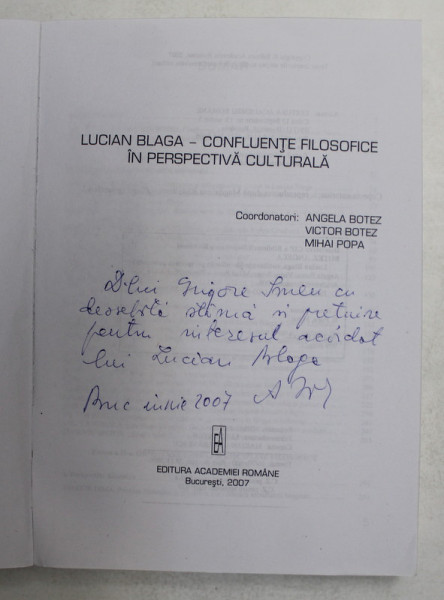 LUCIAN BLAGA – CONFLUENŢE FILOSOFICE
ÎN PERSPECTIVĂ CULTURALĂ
Coordonatori: ANGELA BOTEZ
VICTOR BOTEZ
MIHAI POPA
D-lui Grigore Smeu cu
deosebită stimă și prețuire
pentru interesul acordat
lui Lucian Blaga
Buc iunie 2007
EDITURA ACADEMIEI ROMÂNE
Bucureşti, 2007